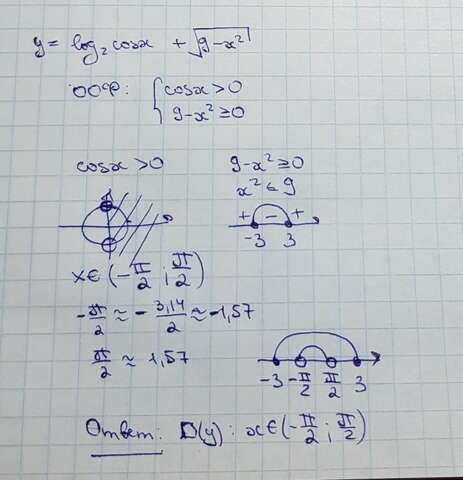 y = log₂cosx + √(9-x²)
ООФ: { cosx > 0
9-x² ≥ 0
cosx > 0
9-x² ≥ 0
x² ≤ 9
+ - +
-3 3
x∈(-π/2; π/2)
-π/2 ≈ -3,14/2 ≈ -1,57
π/2 ≈ 1,57
-3 -π/2 π/2 3
Ответ: D(y): x∈(-π/2; π/2)